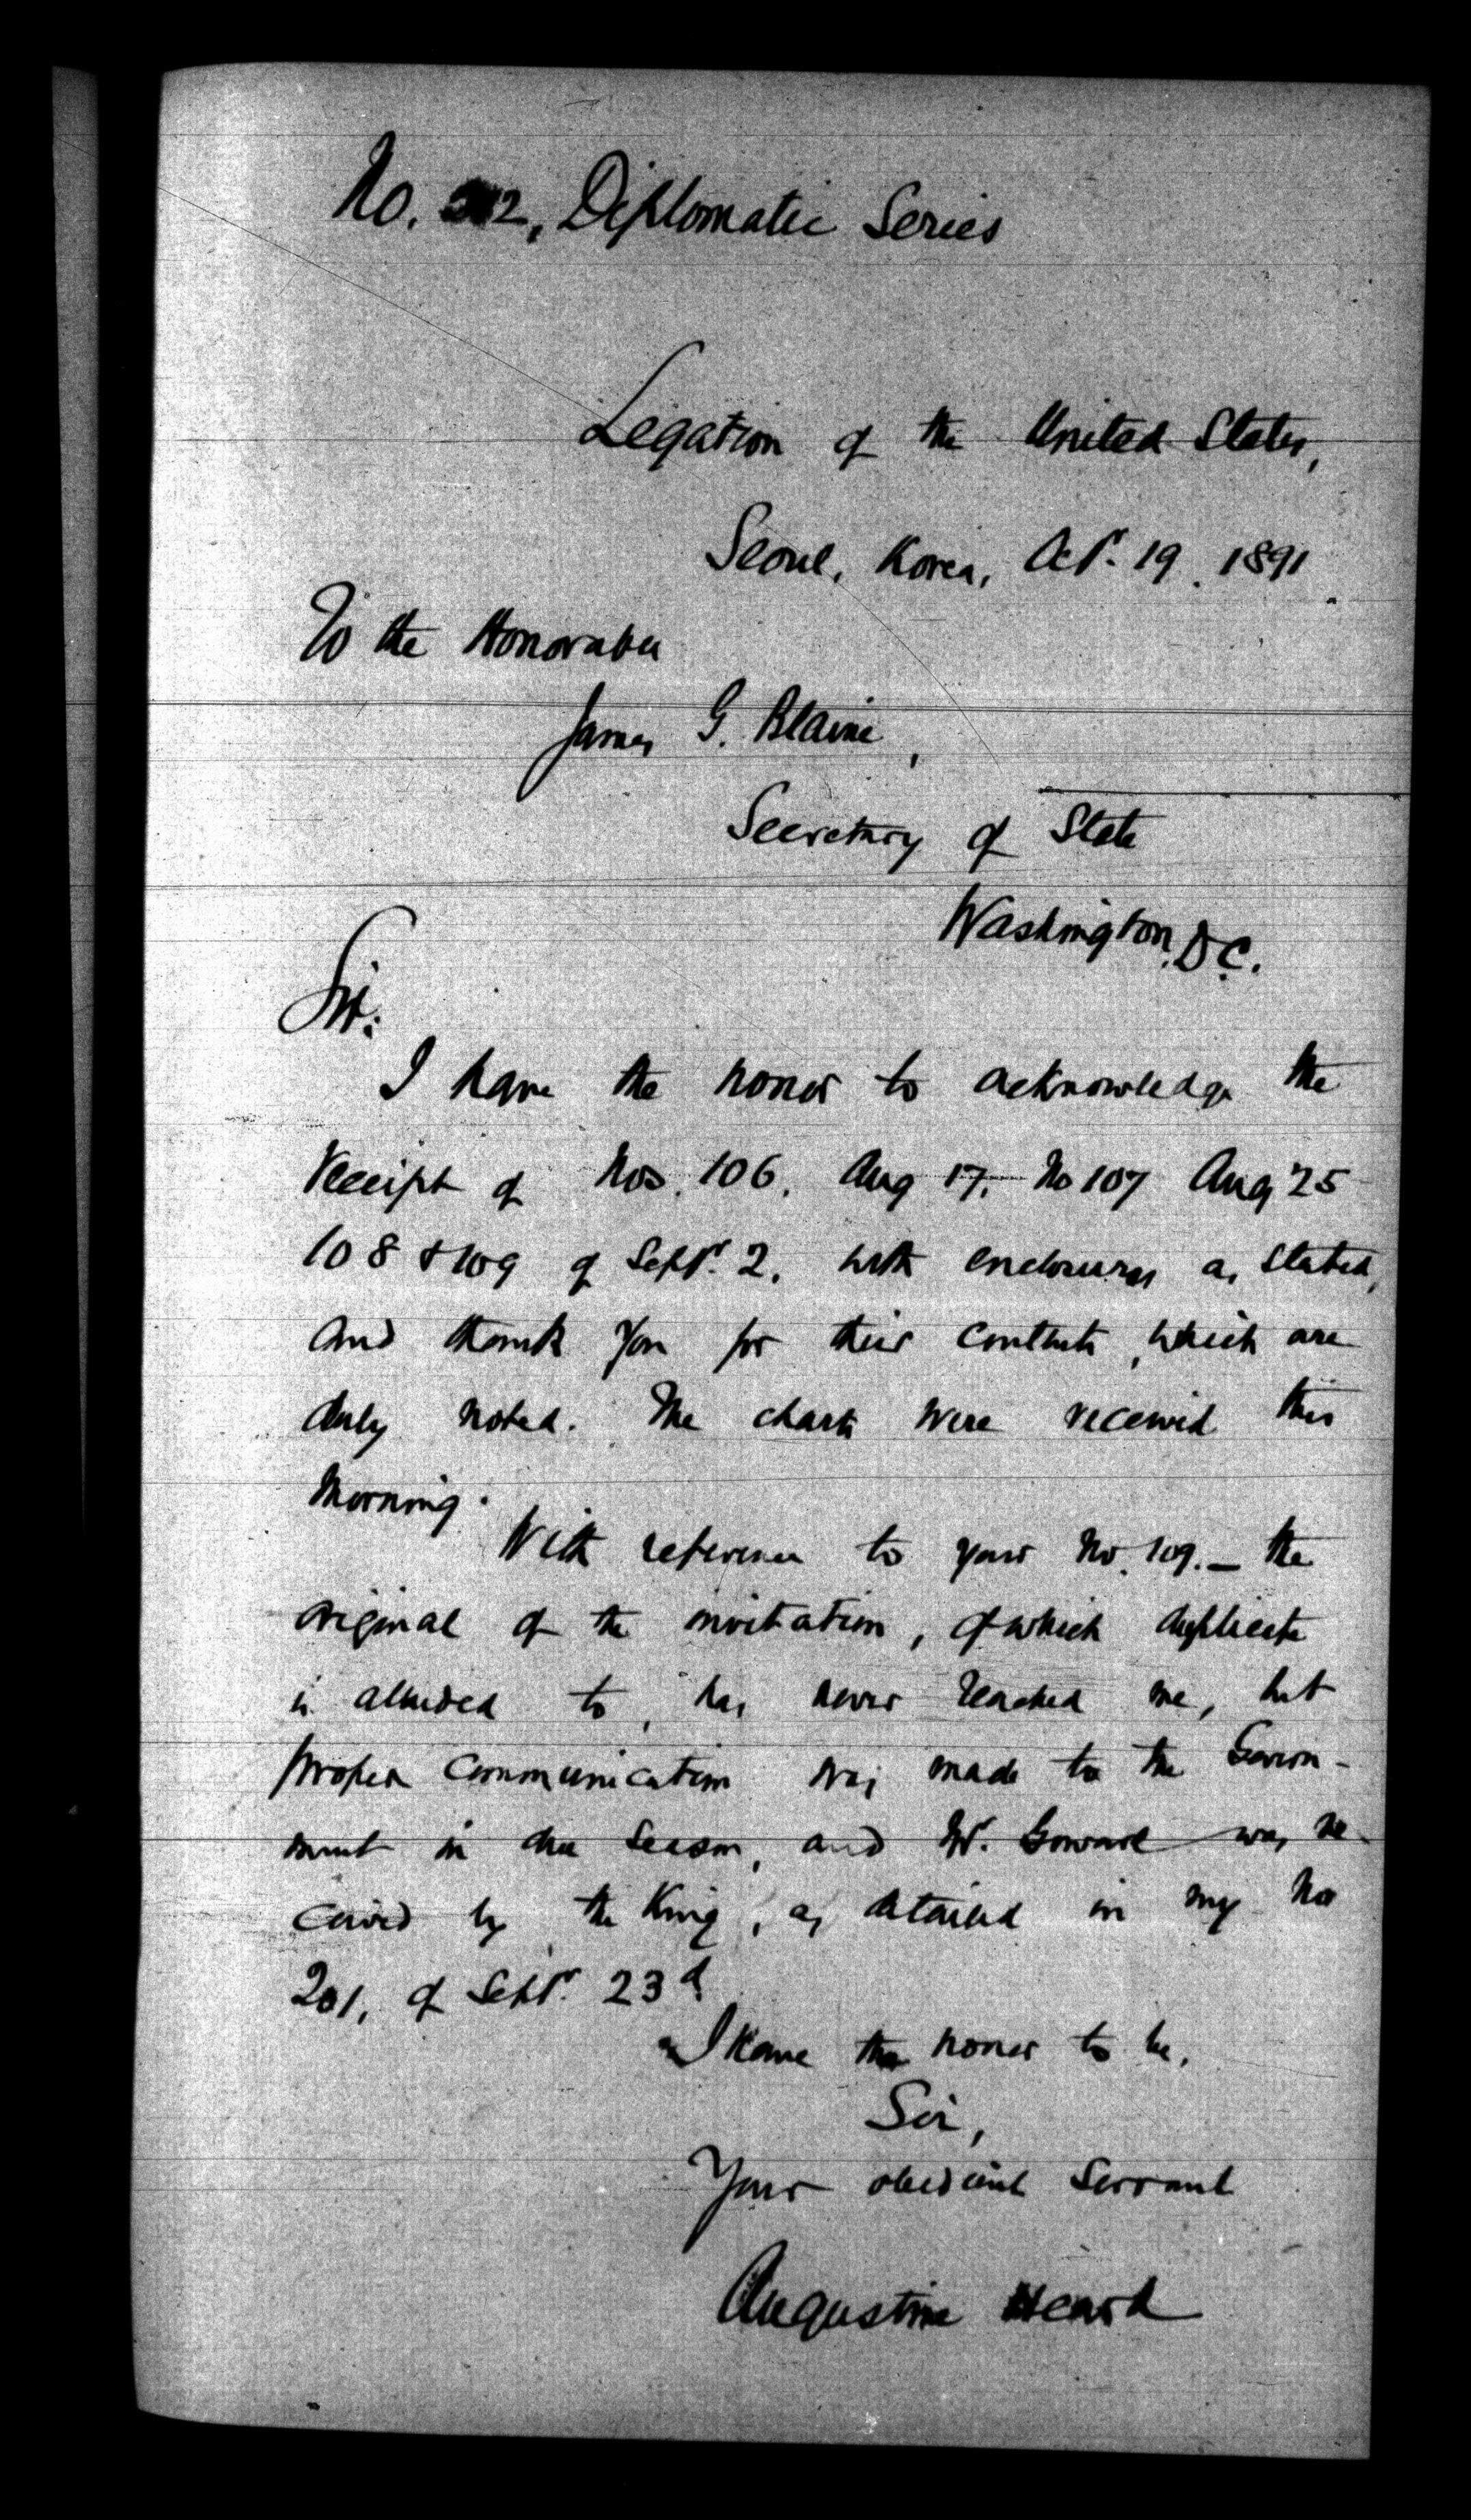 No. 212, Diplomatic Series
Legation of the United States,
Seoul, Korea, Oct. 19. 1891.
To the Honorable
James G. Blaine,
Secretary of State
Washington, D.C.
Sir:
I have the honor to acknowledge the
receipt of Nos. 106, Aug 17, No 107 Aug 25
108 & 109 of Sept. 2, with enclosures as stated,
and thank you for their contents, which are
duly noted. The charts were received this
morning.
With reference to your No. 109. — the
original of the invitation, of which duplicate
is alluded to, has never reached me, but
proper communication was made to the Govern-
ment in due season, and Mr. Goward was re-
ceived by the King, as detailed in my No
201, of Sept. 23d.
I have the honor to be,
Sir,
Your obedient Servant
Augustine Heard